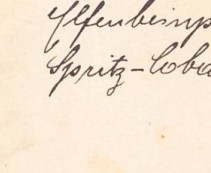 Elfenbeinsp
Spritz-Coba